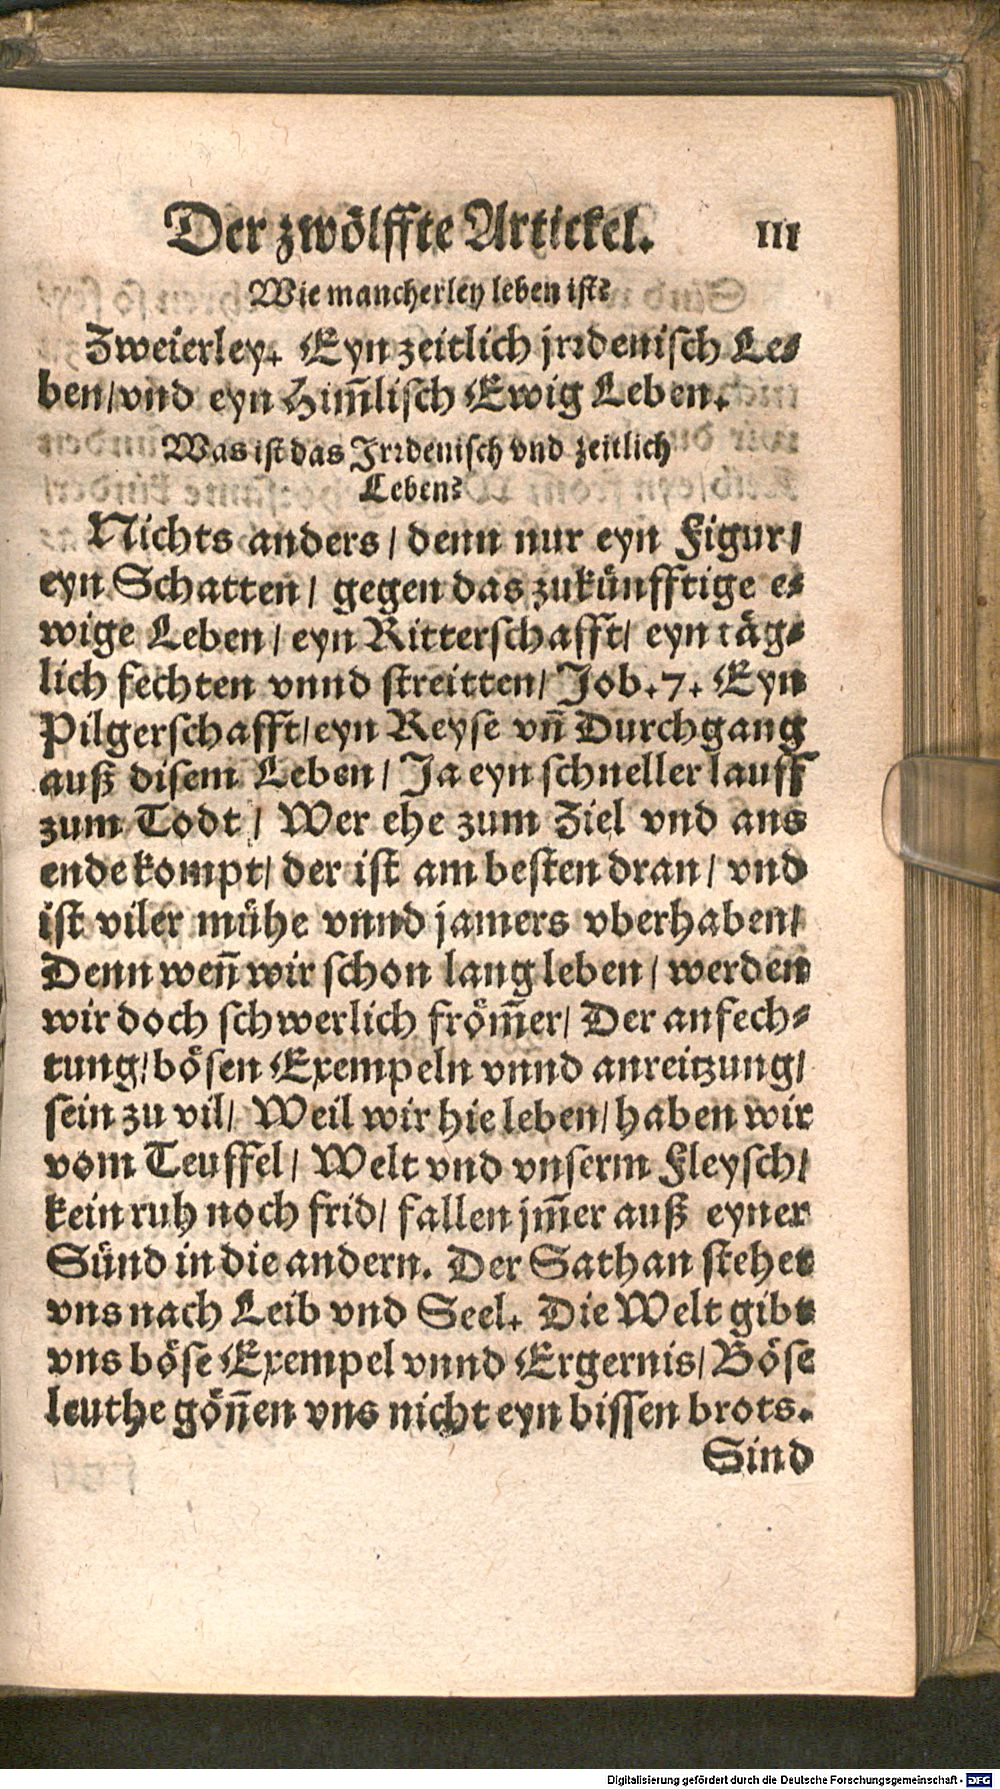 Der zwölffte Artickel. 111
Wie mancherley leben ist?
Zweierley. Eyn zeitlich jrrdenisch Le-
ben/vnd eyn Him̃lisch Ewig Leben.
Was ist das Jrrdenisch vnd zeitlich
Leben?
Nichts anders/ denn nur eyn Figur/
eyn Schatten/ gegen das zukünfftige e-
wige Leben/ eyn Ritterschafft/ eyn täg-
lich fechten vnnd streitten/ Job.7. Eyn
Pilgerschafft/eyn Reyse vñ Durchgang
auß disem Leben/ Ja eyn schneller lauff
zum Todt/ Wer ehe zum Ziel vnd ans
ende kompt/ der ist am besten dran/ vnd
ist viler mühe vnnd jamers vberhaben/
Denn weñ wir schon lang leben/ werden
wir doch schwerlich fröm̃er/ Der anfech-
tung/bösen Exempeln vnnd anreitzung/
sein zu vil/ Weil wir hie leben/haben wir
vom Teuffel/ Welt vnd vnserm Fleysch/
kein ruh noch frid/ fallen jm̃er auß eyner
Sünd in die andern. Der Sathan stehet
vns nach Leib vnd Seel. Die Welt gibt
vns böse Exempel vnnd Ergernis/ Böse
leuthe göñen vns nicht eyn bissen brots.
Sind
Digitalisierung gefördert durch die Deutsche Forschungsgemeinschaft - DFG